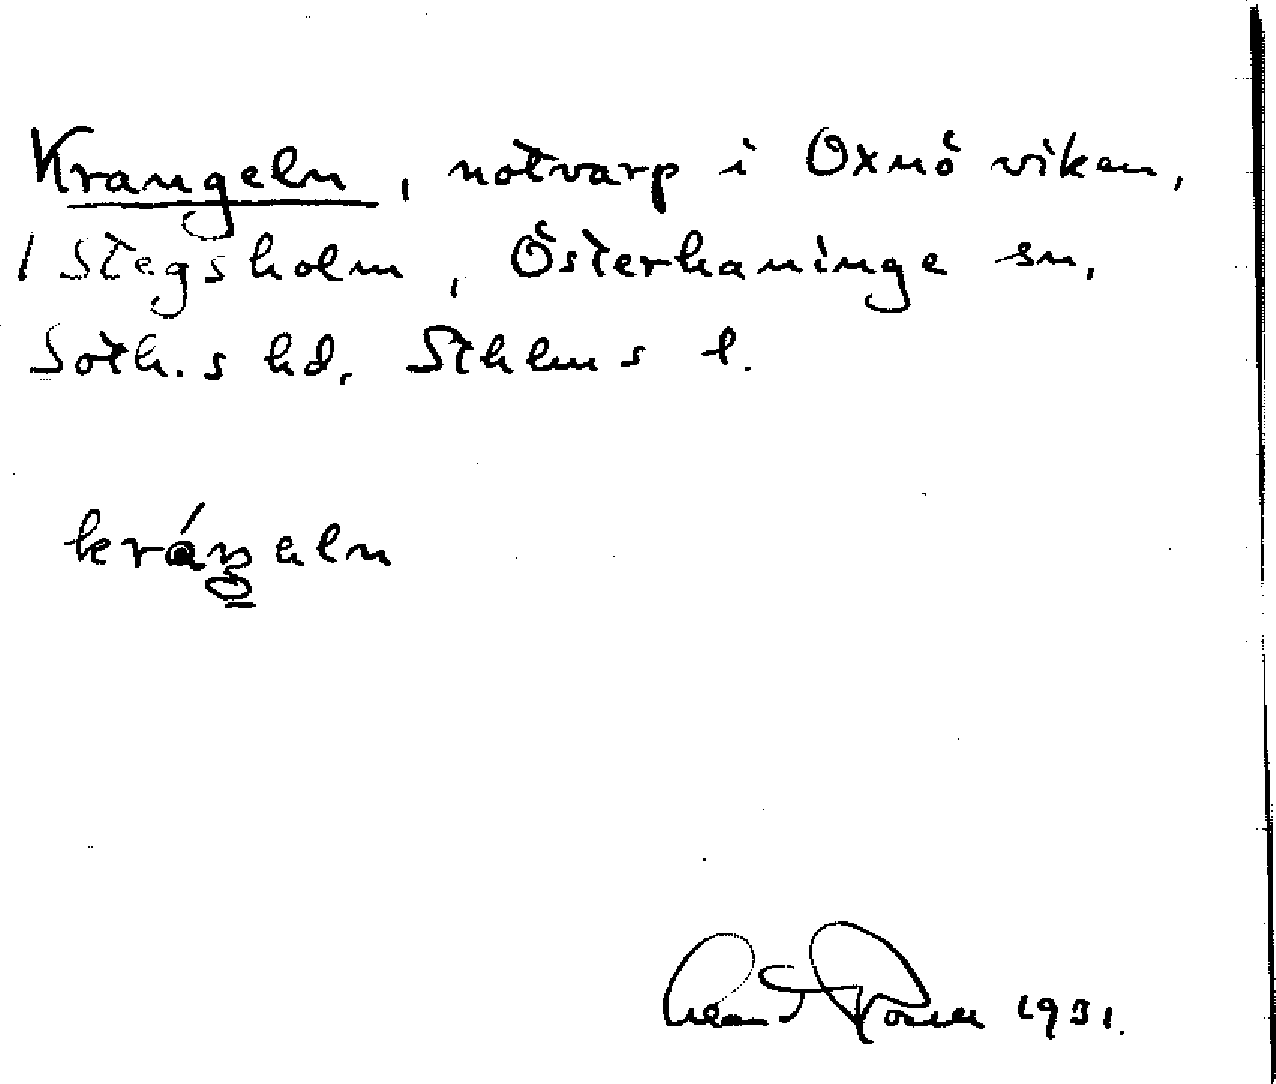 Krangeln, notvarp i Oxnö viken,
/ Stegsholm, Österhaninge sn,
Soth.s hd, Sthlms l.
kráŋeln
1931.